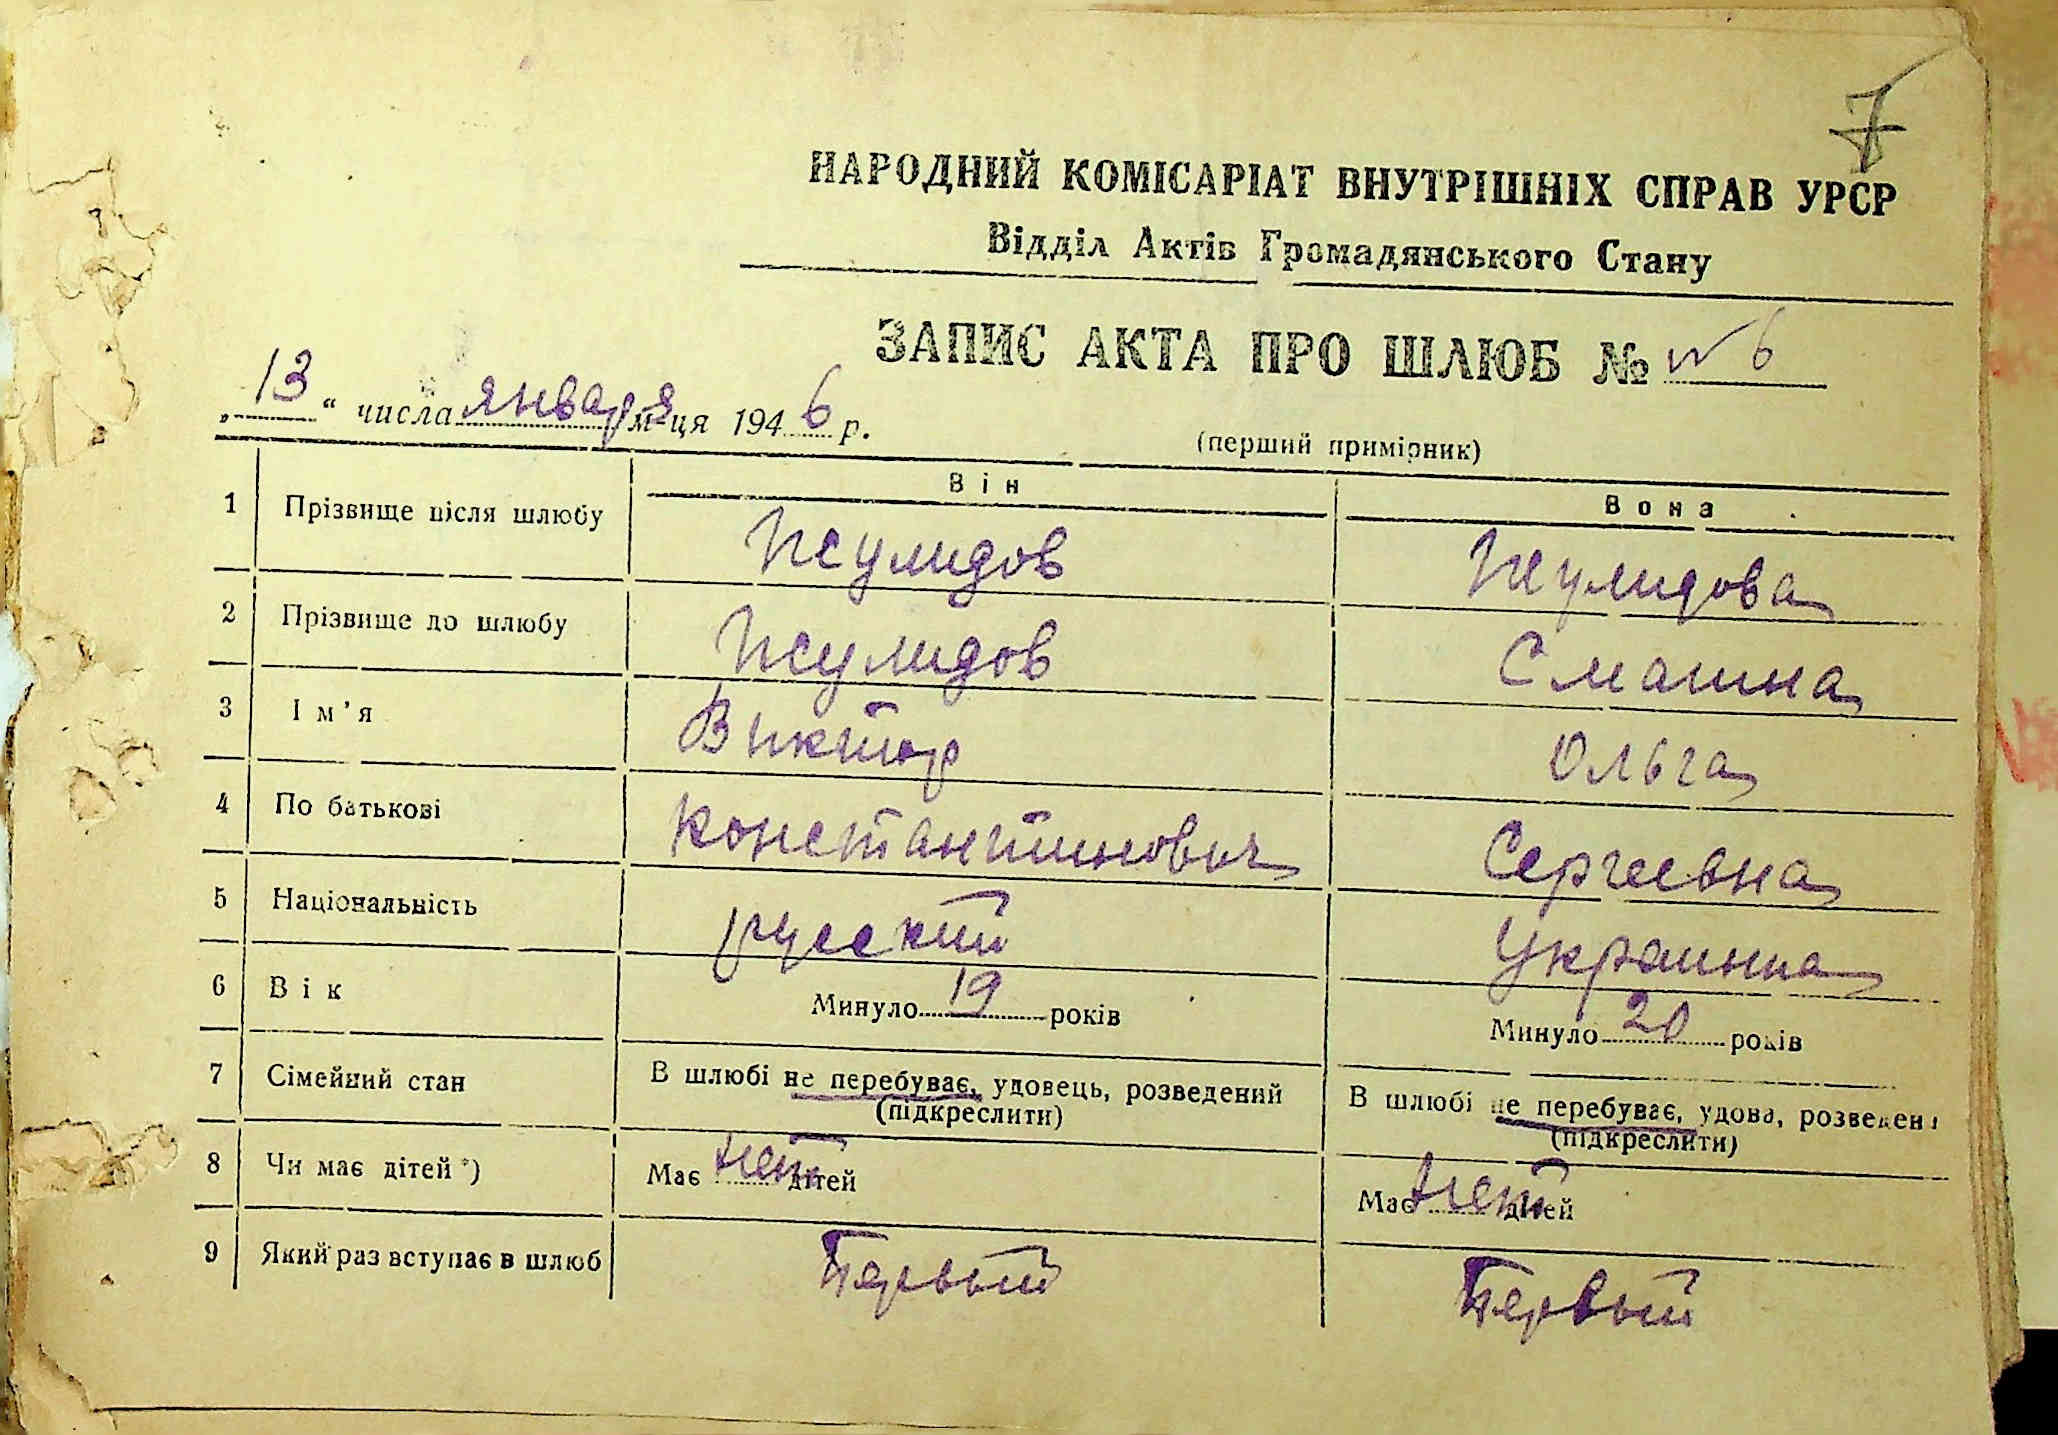 7
НАРОДНИЙ КОМІСАРІАТ ВНУТРІШНІХ СПРАВ УРСР
Відділ Актів Громадянського Стану
ЗАПИС АКТА ПРО ШЛЮБ № № 6
„13“ числа января м-ця 1946 р.
(перший примірник)
Він Вона
1 Прізвище після шлюбу Псулидов Псулидова
2 Прізвище до шлюбу Псулидов Смашна
3 Ім'я Виктор Ольга
4 По батькові Константинович Сергеевна
5 Національність русский Украинка
6 Вік Минуло 19 років Минуло 20 років
7 Сімейний стан В шлюбі не перебуває, удовець, розведений В шлюбі не перебуває, удова, розведена
(підкреслити) (підкреслити)
8 Чи має дітей*) Має нет дітей Має нет дітей
9 Який раз вступає в шлюб Первый Первый